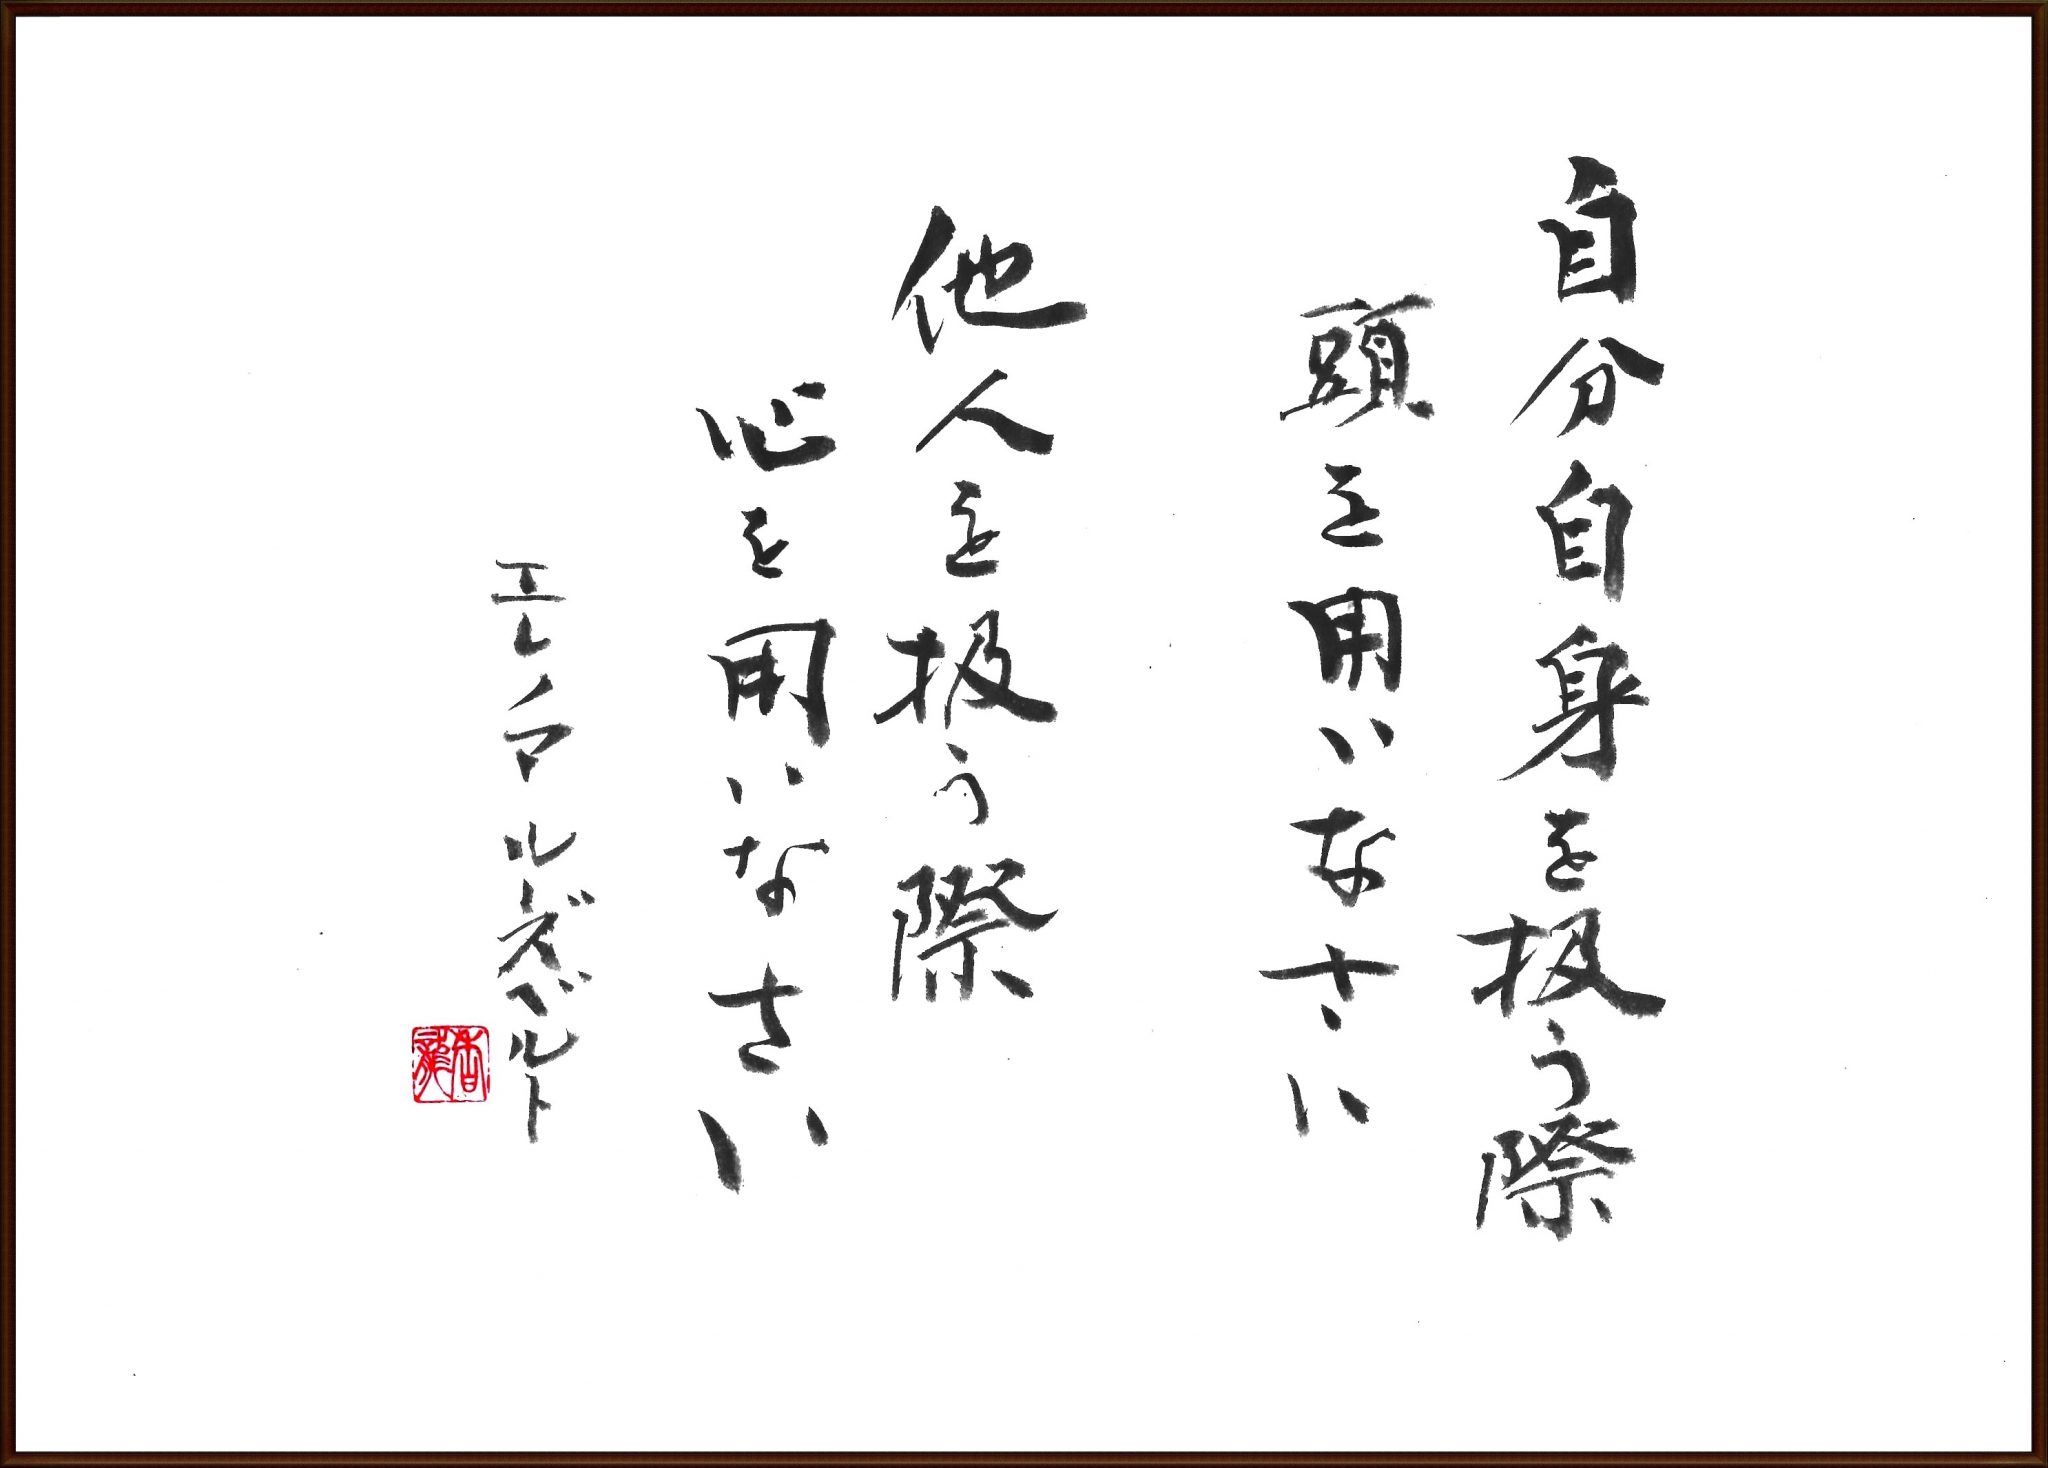 自分自身を扱う際
頭を用いなさい
他人を扱う際
心を用いなさい
エレノア ルーズベルト
香龍